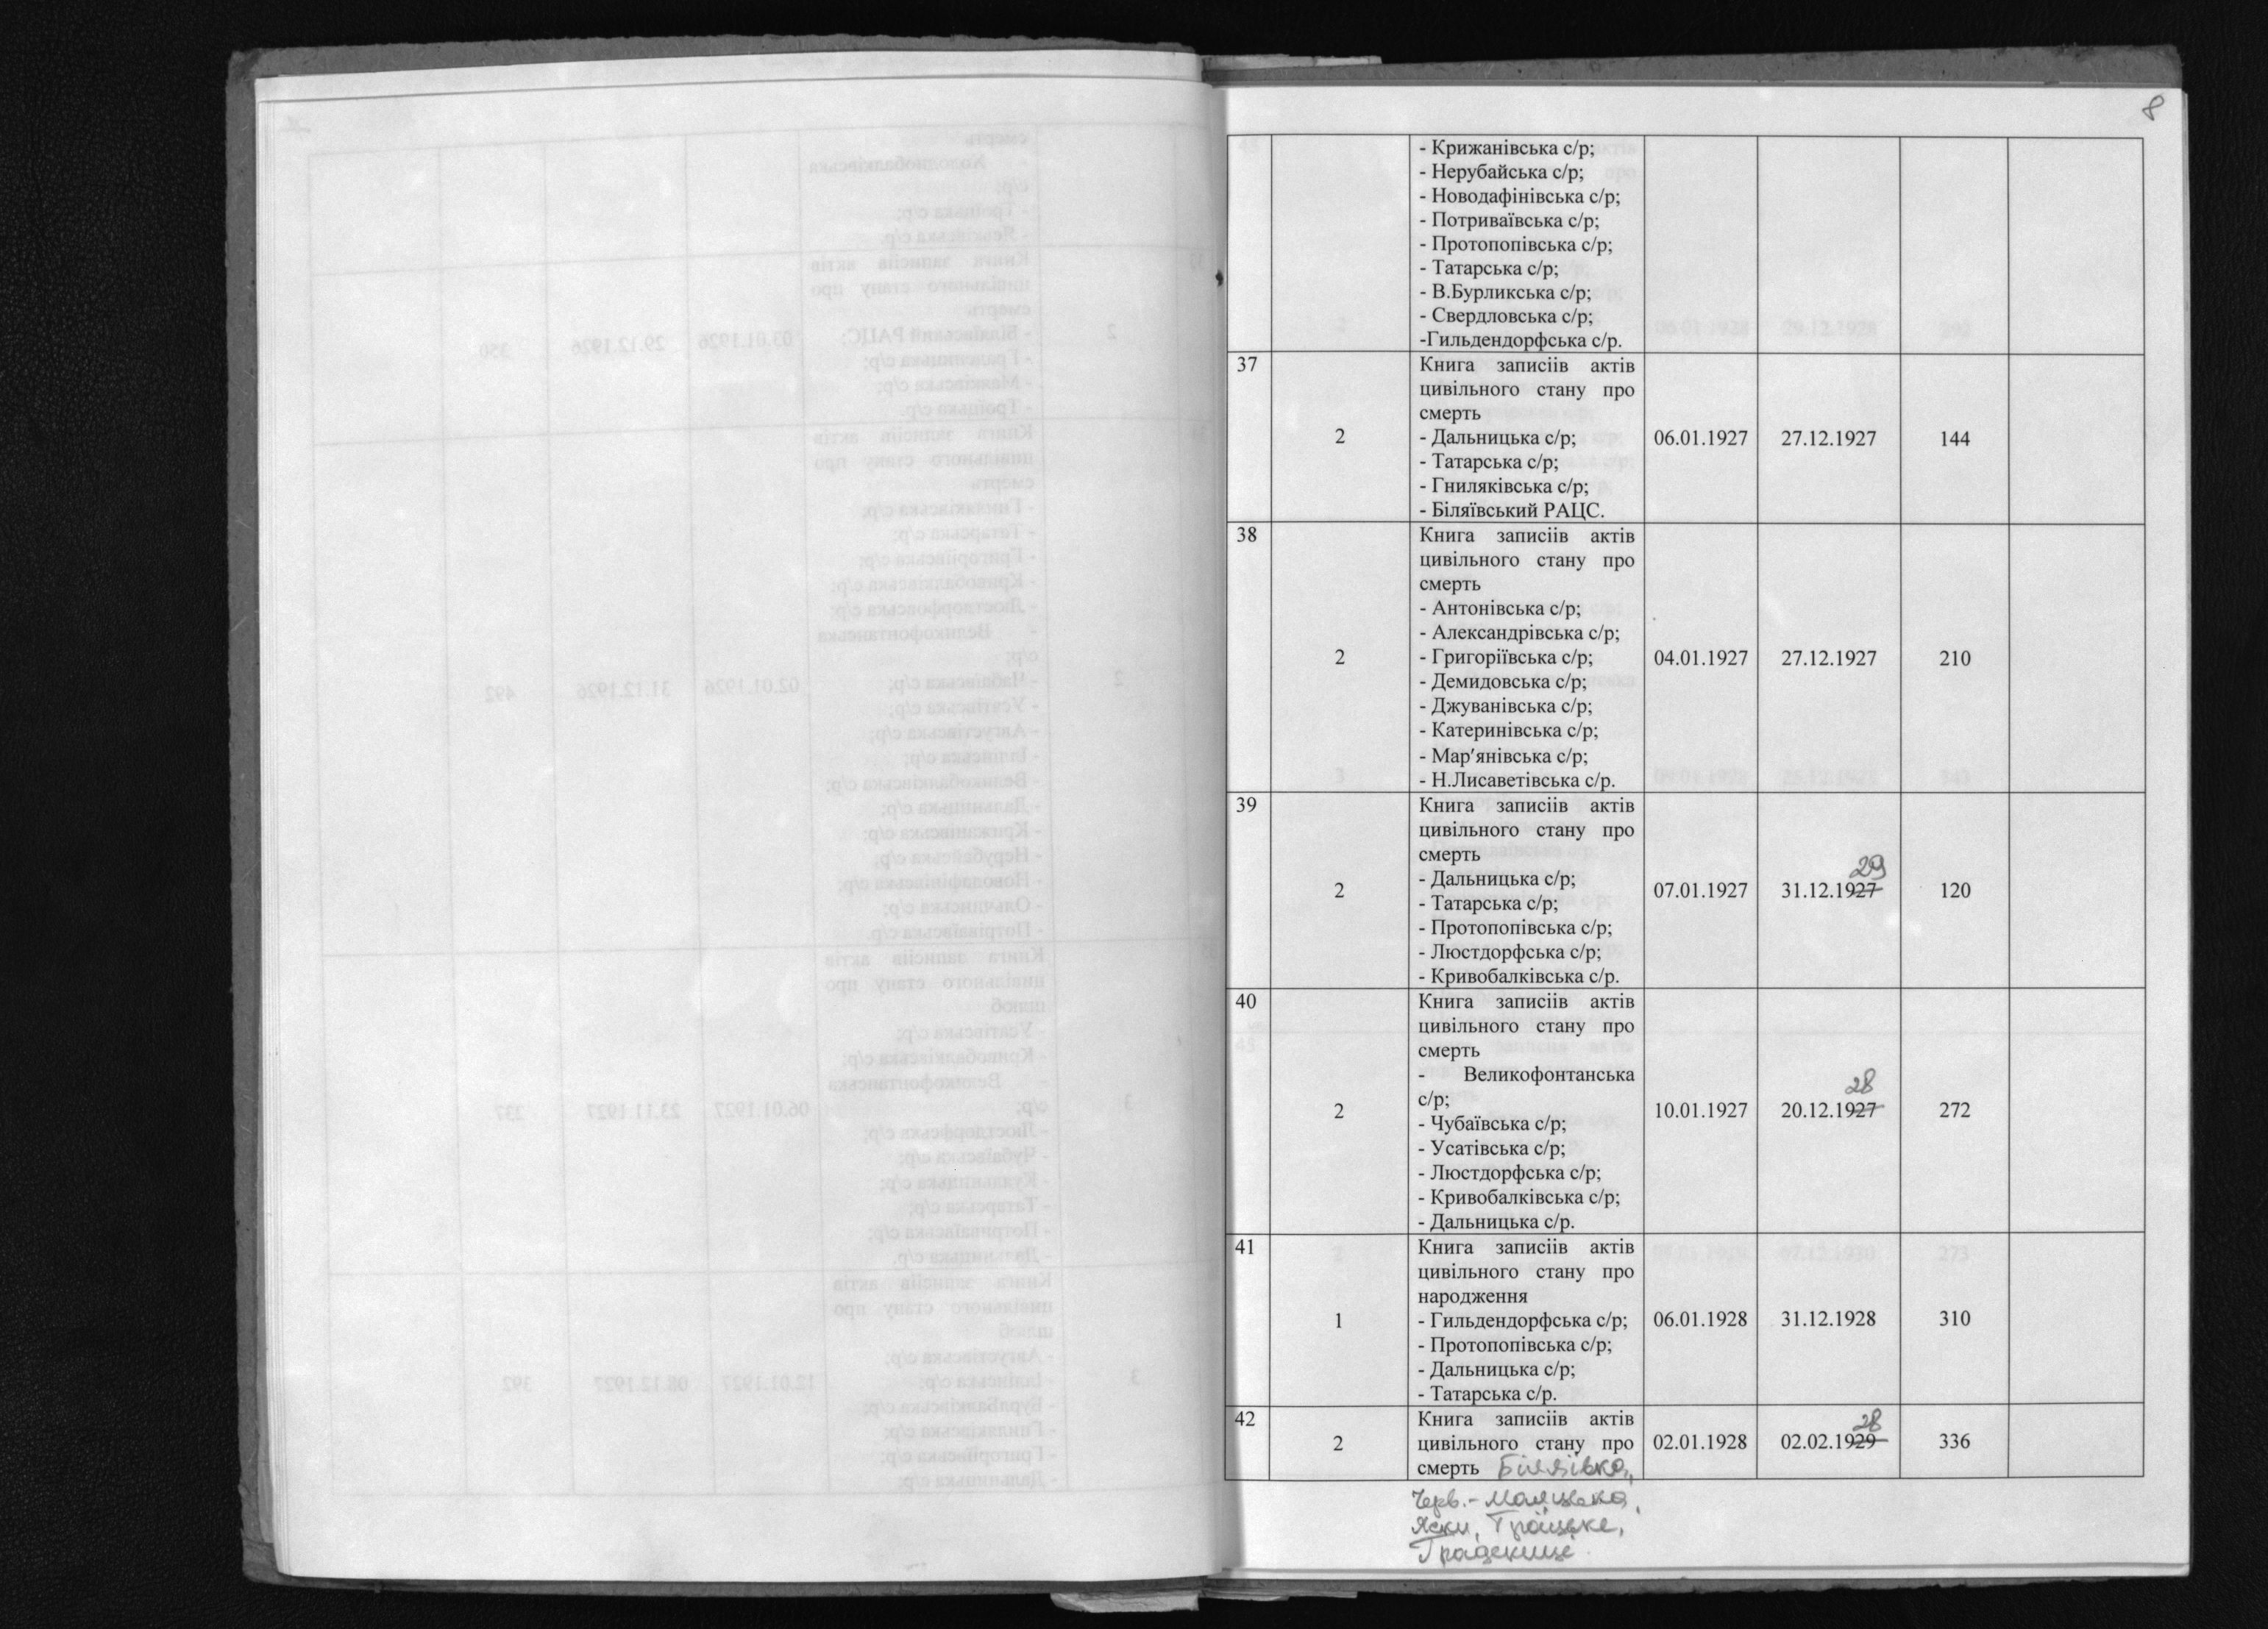 8
- Крижанівська с/р;
- Нерубайська с/р;
- Новодафінівська с/р;
- Потриваївська с/р;
- Протопопівська с/р;
- Татарська с/р;
- В.Бурликська с/р;
- Свердловська с/р;
-Гильдендорфська с/р.
37
Книга записіів актів
цивільного стану про
смерть
- Дальницька с/р;
- Татарська с/р;
- Гниляківська с/р;
- Біляївський РАЦС.
2 06.01.1927 27.12.1927 144
38
Книга записіів актів
цивільного стану про
смерть
- Антонівська с/р;
- Александрівська с/р;
- Григоріївська с/р;
- Демидовська с/р;
- Джуванівська с/р;
- Катеринівська с/р;
- Мар'янівська с/р;
- Н.Лисаветівська с/р.
2 04.01.1927 27.12.1927 210
39
Книга записіів актів
цивільного стану про
смерть
- Дальницька с/р;
- Татарська с/р;
- Протопопівська с/р;
- Люстдорфська с/р;
- Кривобалківська с/р.
29
2 07.01.1927 31.12.1927 120
40
Книга записіів актів
цивільного стану про
смерть
- Великофонтанська
с/р;
- Чубаївська с/р;
- Усатівська с/р;
- Люстдорфська с/р;
- Кривобалківська с/р;
- Дальницька с/р.
28
2 10.01.1927 20.12.1927 272
41
Книга записіів актів
цивільного стану про
народження
- Гильдендорфська с/р;
- Протопопівська с/р;
- Дальницька с/р;
- Татарська с/р.
1 06.01.1928 31.12.1928 310
42
Книга записіів актів
цивільного стану про
смерть Біляївка,
28
2 02.01.1928 02.02.1929 336
Черв.-
Яски, Троїцьке,